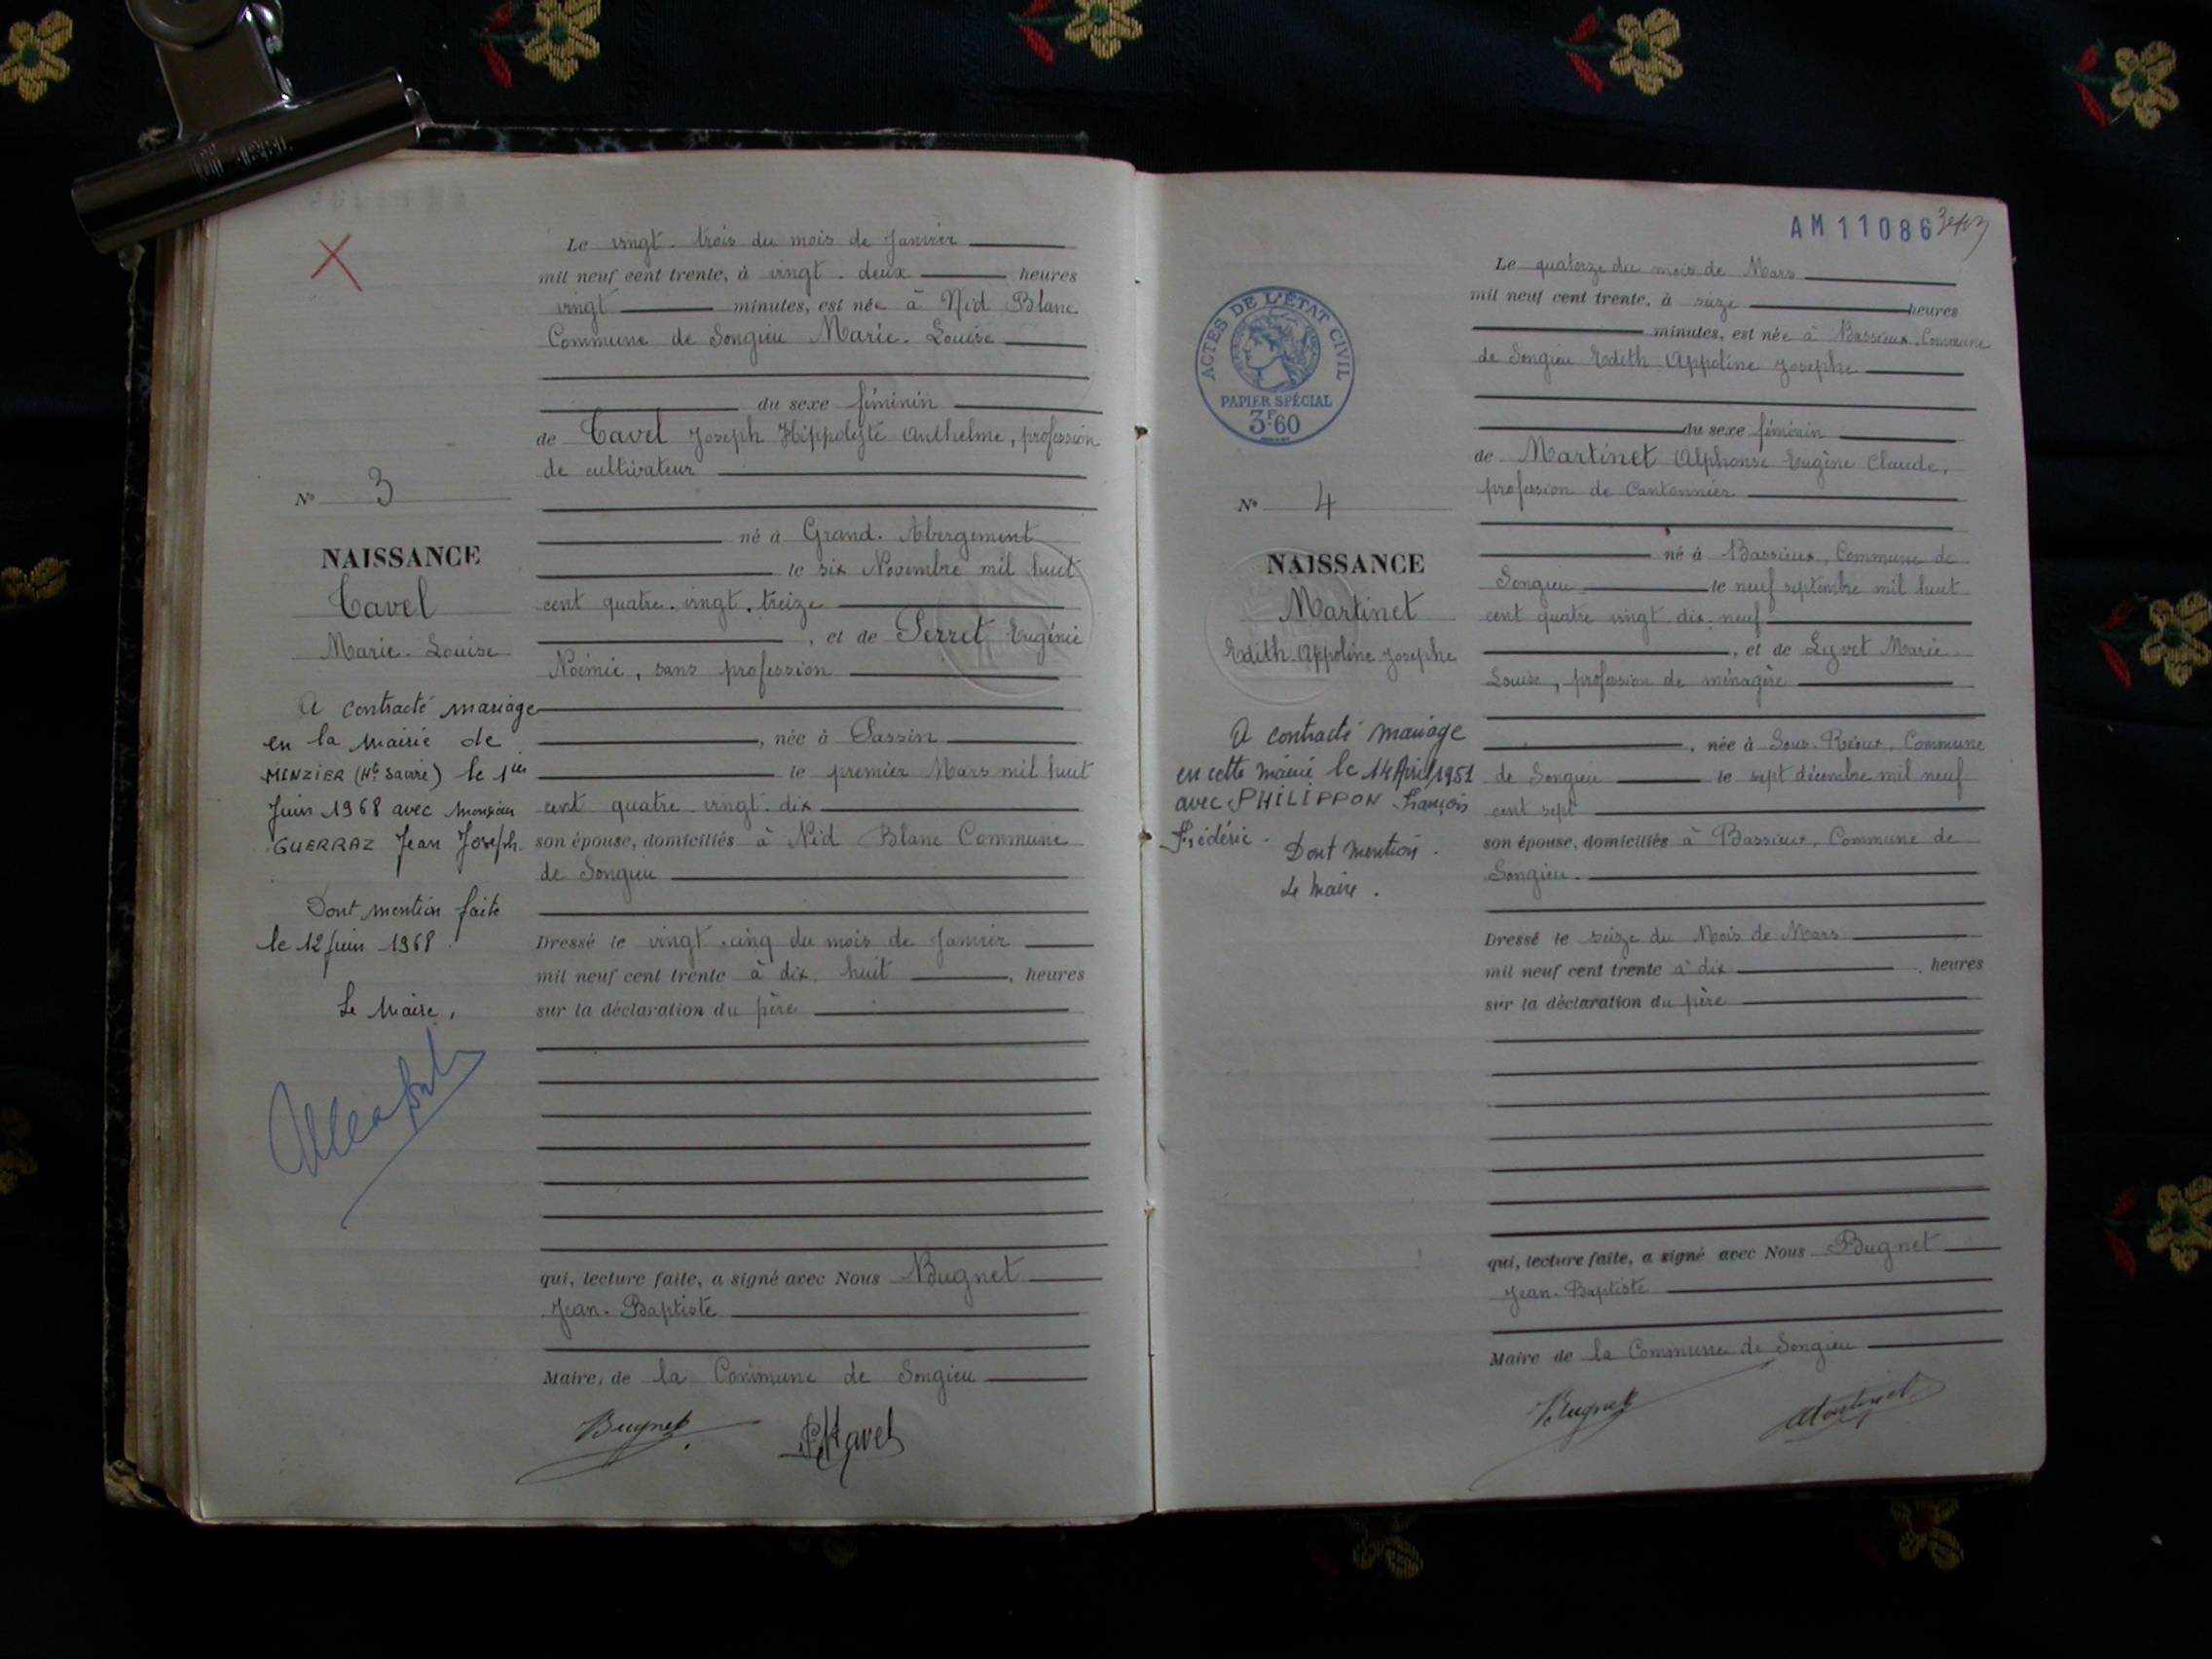 Le vingt-trois du mois de Janvier
mil neuf cent trente, à vingt-deux heures
vingt minutes, est née à Nid Blanc
Commune de Songieu Marie-Louise
du sexe féminin
de Tavel Joseph Hippolyte Anthelme, profession
de cultivateur
né à Grand-Abergement
le six Novembre mil huit
cent quatre-vingt-treize
, et de Perret Eugénie
Noémie, sans profession
, née à Passin
le premier Mars mil huit
cent quatre-vingt-dix
son épouse, domiciliés à Nid Blanc Commune
de Songieu
Dressé le vingt-cinq du mois de Janvier
mil neuf cent trente à dix-huit, heures
sur la déclaration du père
qui, lecture faite, a signé avec Nous Bugnet
Jean-Baptiste
Maire, de la Commune de Songieu
Bugnet
Tavel
N° 3
NAISSANCE
Tavel
Marie-Louise
A contracté mariage
en la mairie de
MINZIER (Hte Savoie) le 1er
Juin 1968 avec Monsieur
GUERRAZ Jean Joseph.
Dont mention faite
le 12 Juin 1968.
Le Maire,
AM 11086
ACTES DE L'ÉTAT CIVIL
PAPIER SPÉCIAL
3F60
N° 4
NAISSANCE
Martinet
Edith-Appoline Josephe
A contracté mariage
en cette mairie le 14 Avril 1951
avec PHILIPPON François
Frédéric.
Dont mention.
Le Maire.
Le quatorze du mois de Mars
mil neuf cent trente, à seize heures
minutes, est née à Bassieux, Commune
de Songieu Edith-Appoline Josephe
du sexe féminin
de Martinet Alphonse Eugène Claude,
profession de Cantonnier
né à Bassieux, Commune de
Songieu le neuf septembre mil huit
cent quatre vingt dix-neuf
, et de Lyvet Marie-
Louise, profession de ménagère
, née à Sous-Rieux, Commune
de Songieu le sept décembre mil neuf
cent sept
son épouse, domiciliés à Bassieux, Commune de
Songieu.
Dressé le seize du Mois de Mars
mil neuf cent trente à dix, heures
sur la déclaration du père
qui, lecture faite, a signé avec Nous Bugnet
Jean-Baptiste
Maire de la Commune de Songieu
Bugnet
Martinet